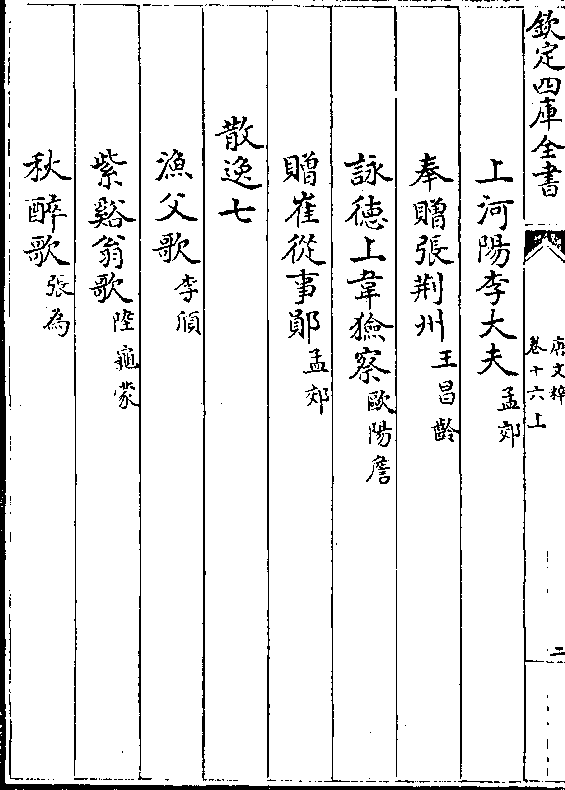 欽定四庫全書
唐文粹
卷十六上
二
上河陽李大夫 孟郊
奉贈張荆州 王昌齡
詠德上韋檢察 歐陽詹
贈崔從事鄖 孟郊
散逸七
漁父歌 李頎
紫谿翁歌 陸龜蒙
秋醉歌 張為